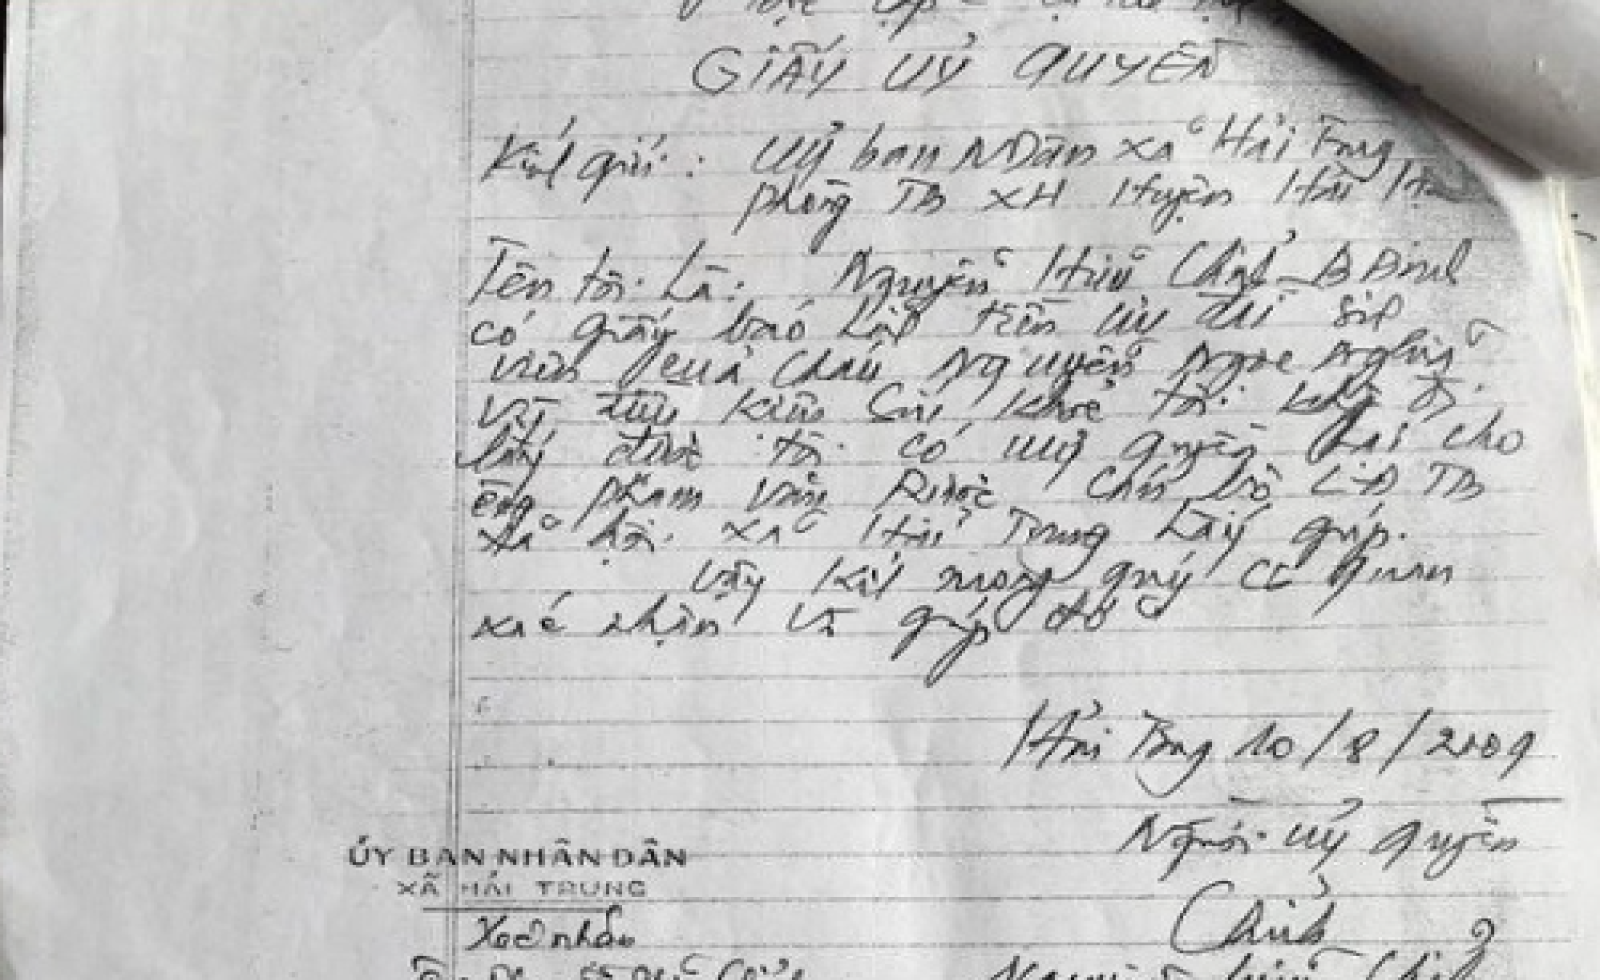 GIẤY UỶ QUYỀN
Kính gửi: Uỷ ban NDân xã Hải Trung
phòng TB XH Huyện Hải
Tên tôi là: Nguyễn Hữu Chỉnh
có giấy báo lấy tiền ưu đãi
viên của cháu Nguyễn Ngọc Nghĩa
Vì điều kiện sức khoẻ tôi không đi
lấy được tôi có uỷ quyền lại cho
ông Phạm Văn Được Cán bộ LĐ TB
xã hội xã Hải Trung lấy giúp.
Vậy kính mong quý cơ quan
xác nhận và giúp đỡ
Hải Trung 10/8/2009
Người uỷ quyền
ỦY BAN NHÂN DÂN
XÃ HẢI TRUNG
Xác nhận
Chỉnh